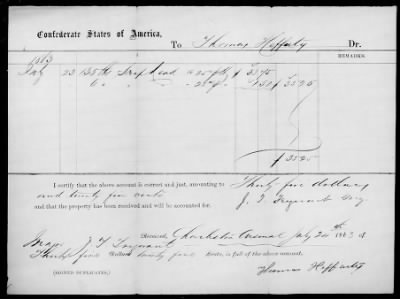 Confederate States of America,
To Thomas Hefferty Dr.
REMARKS.
1863
July 23 135 lb Scrap Lead a 25 ¢ lb $ 33 75
6 " " " 25 ¢ " 1 50 $ 35 25
$ 35 25
I certify that the above account is correct and just, amounting to Thirty five dollars
and twenty five cents
and that the property has been received and will be accounted for. J. T. Trezevant Maj
Received, Charleston Arsenal July 24th 1863 of
Major J T Trezevant
Thirty five Dollars twenty five Cents, in full of the above amount.
(SIGNED DUPLICATES.) Thomas Hefferty